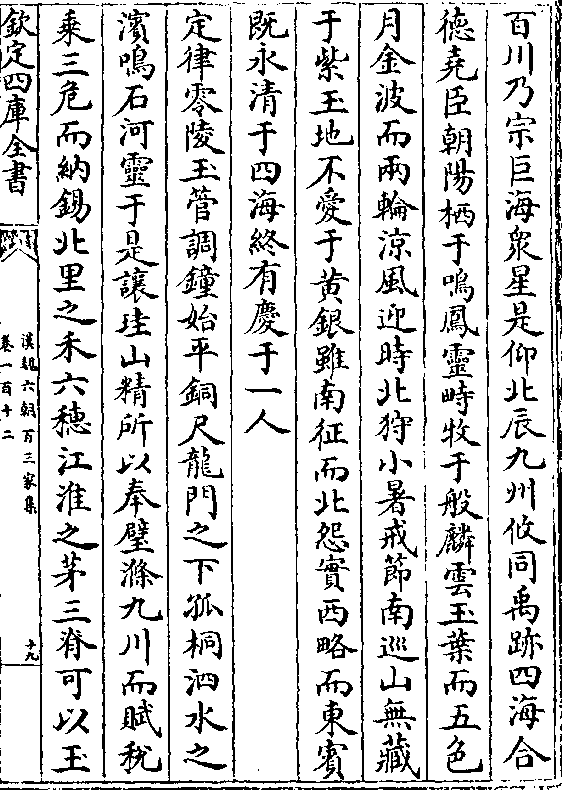 百川乃宗巨海衆星是仰北辰九州攸同禹跡四海合
德堯臣朝陽栖于鳴鳳靈畤牧于般麟雲玉葉而五色
月金波而兩輪涼風迎時北狩小暑戒節南巡山無藏
于紫玉地不愛于黄銀雖南征而北怨實西略而東賓
既永清于四海終有慶于一人
定律零陵玉管調鐘始平銅尺龍門之下孤桐泗水之
濱鳴石河靈于是讓珪山精所以奉璧滌九川而賦稅
乘三危而納錫北里之禾六穗江淮之茅三脊可以玉
欽定四庫全書
漢魏六朝百三家集
卷一百十二
十九